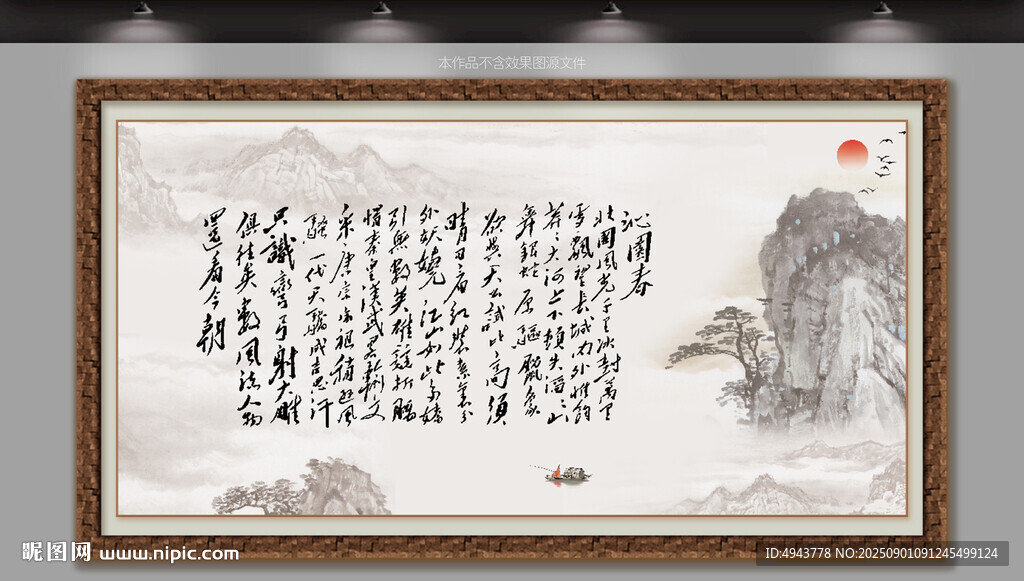 本作品不含效果图源文件
沁園春
北國風光千里冰封萬里
雪飄望長城內外惟餘
莽々大河上下頓失滔々山
舞銀蛇原驅臘象
欲與天公試比高須
晴日看紅裝素裹分
外妖嬈江山如此多嬌
引無數英雄競折腰
惜秦皇漢武略輸文
采唐宗宋祖稍遜風
騷一代天驕成吉思汗
只識彎弓射大雕
俱往矣數風流人物
還看今朝
昵图网 www.nipic.com
ID:4943778 NO:20250901091245499124